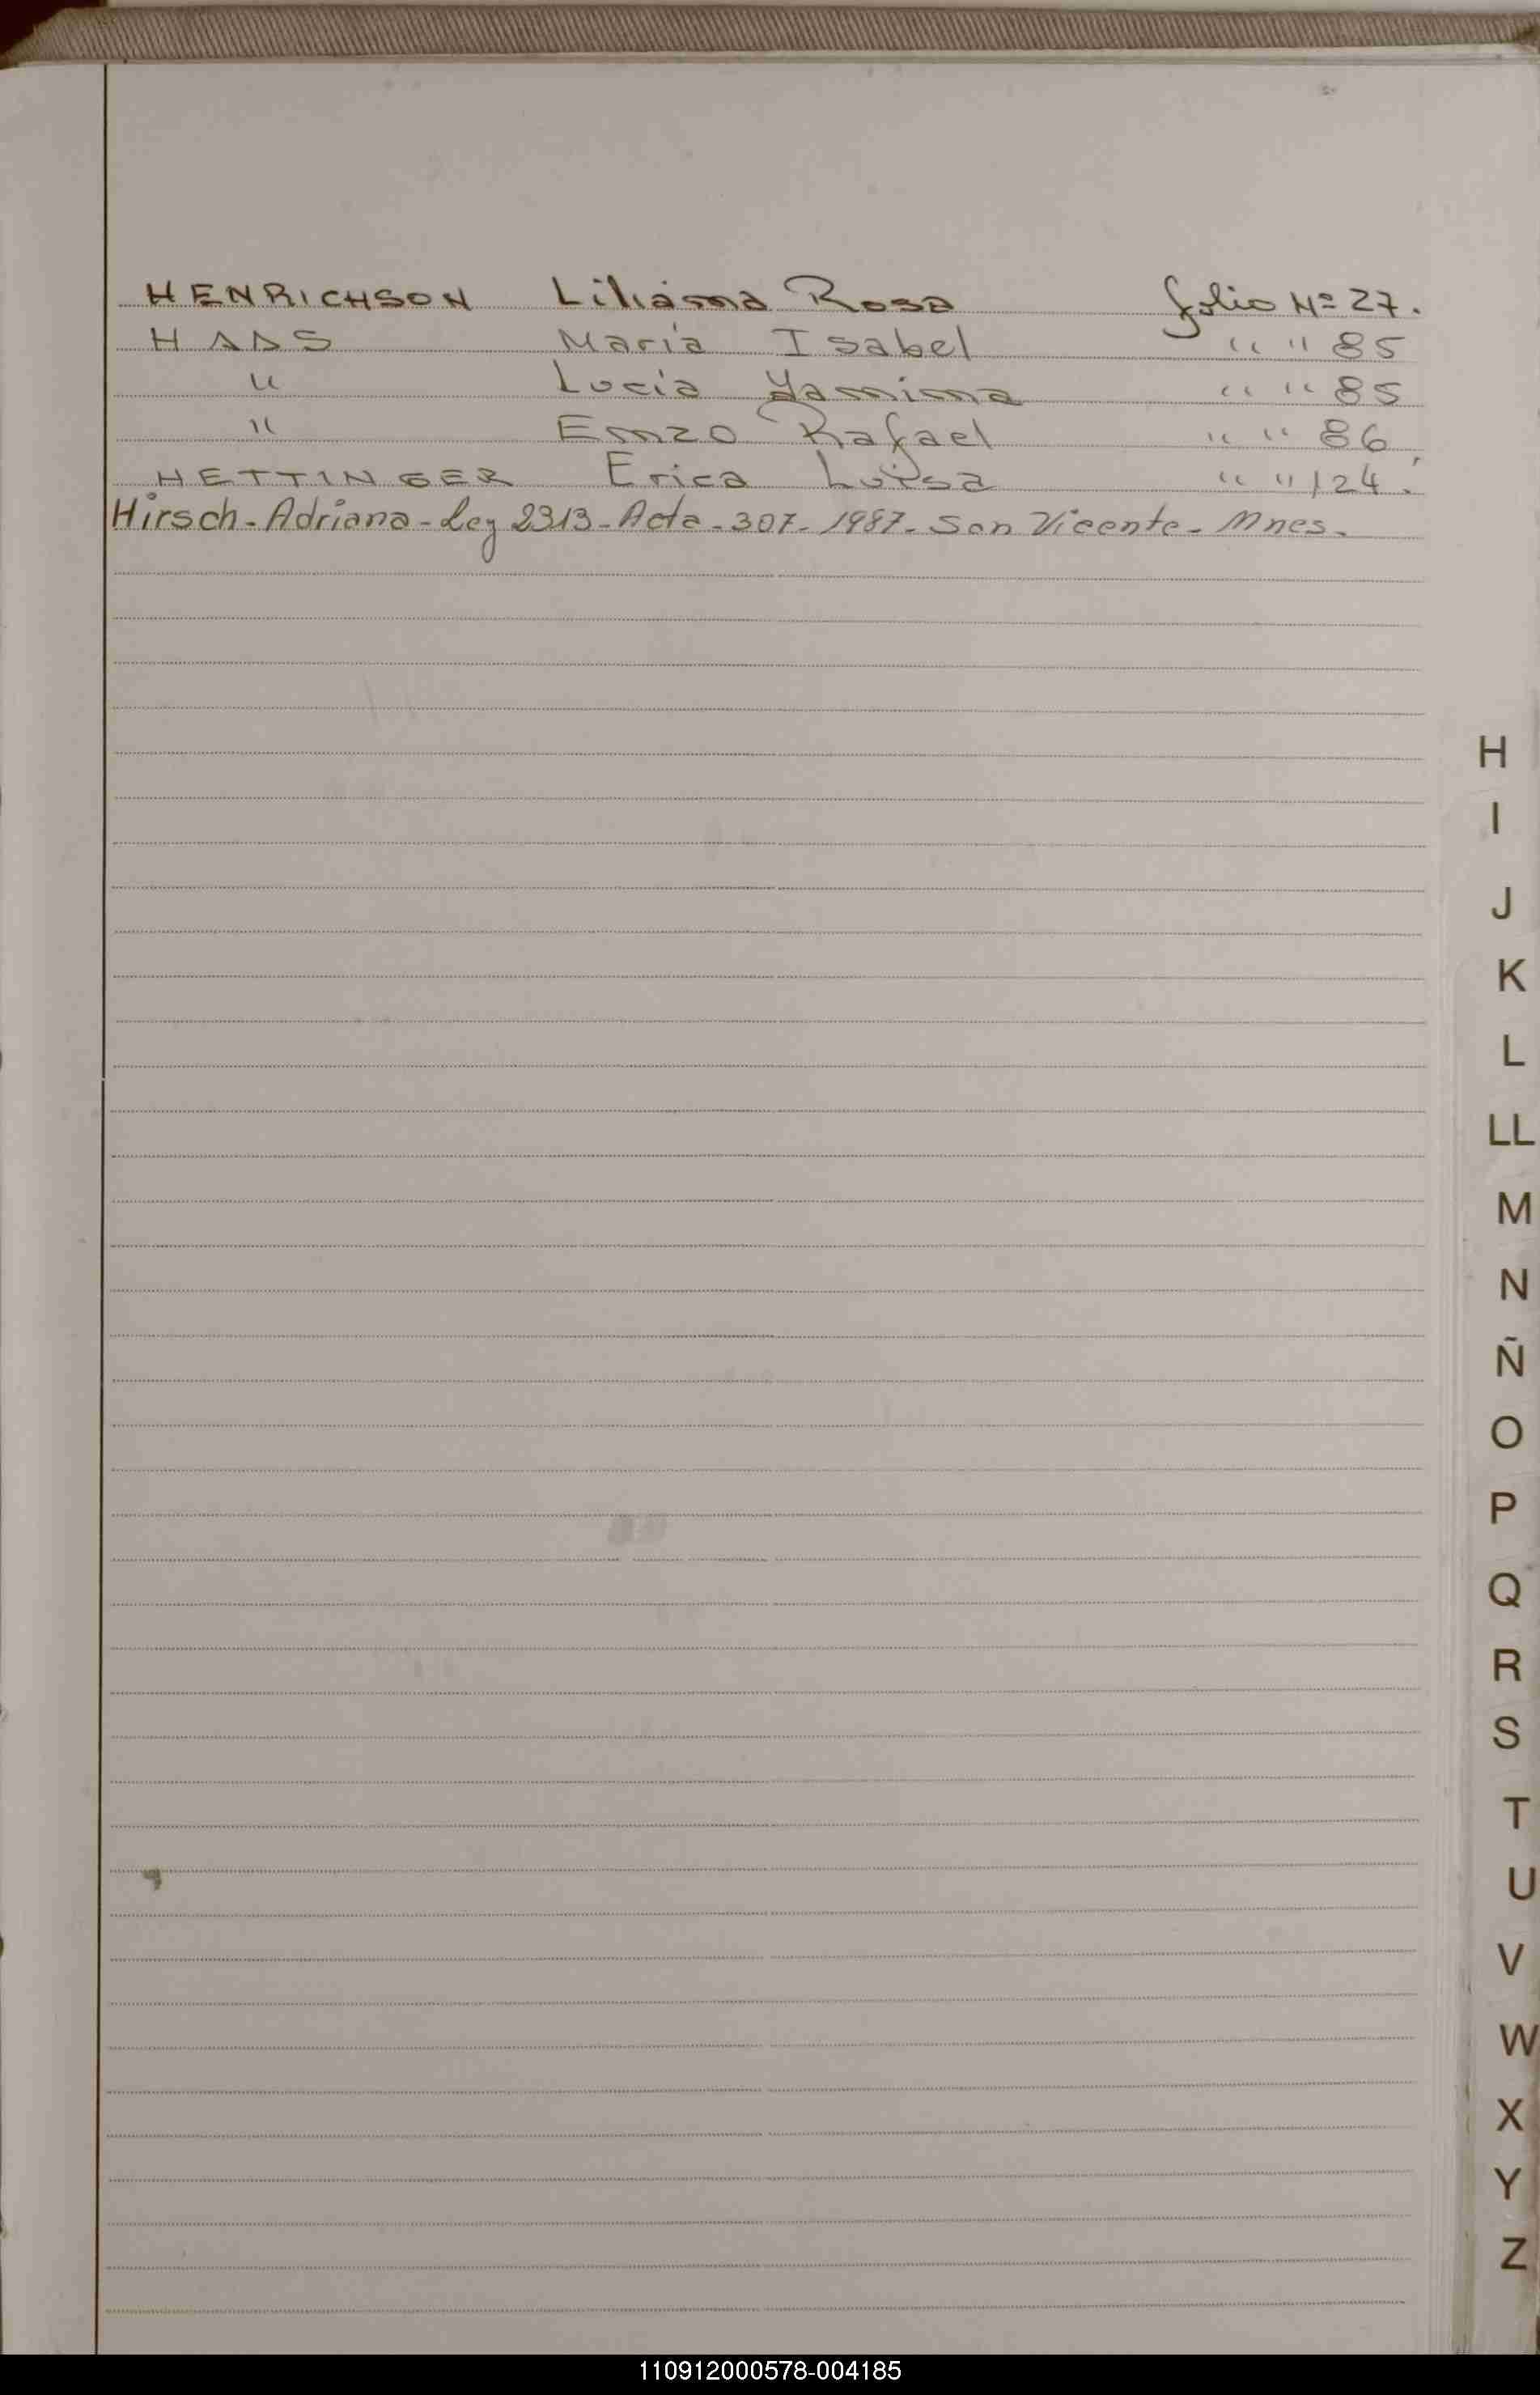 HENRICHSON Liliana Rosa folio Nº 27.
HAAS Maria Isabel " " 85
" Lucia Yamina " " 85
" Enzo Rafael " " 86
HETTINGER Erica Luisa " " 124.
Hirsch - Adriana - Ley 2313 - Acta - 307 - 1987 - San Vicente - Mnes.
H
I
J
K
L
LL
M
N
Ñ
O
P
Q
R
S
T
U
V
W
X
Y
Z
110912000578-004185